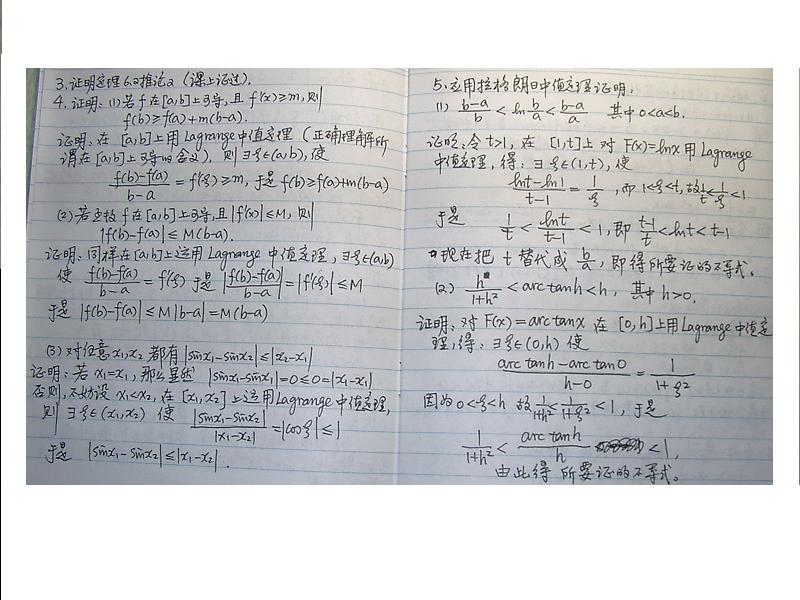 3.证明定理6.2推论2（课上证过）.
4.证明：(1)若f在[a,b]上可导,且 f'(x)≥m,则
f(b)≥f(a)+m(b-a).
证明：在[a,b]上用Lagrange中值定理（正确理解所
谓在[a,b]上可导的含义），则∃ξ∈(a,b),使
(f(b)-f(a))/(b-a) = f'(ξ)≥m, 于是 f(b)≥f(a)+m(b-a)
(2)若函数f在[a,b]上可导,且|f'(x)|≤M,则
|f(b)-f(a)|≤M(b-a).
证明：同样在[a,b]上运用Lagrange中值定理, ∃ξ∈(a,b)
使 (f(b)-f(a))/(b-a) = f'(ξ) 于是 |(f(b)-f(a))/(b-a)| = |f'(ξ)|≤M
于是 |f(b)-f(a)|≤M|b-a|=M(b-a)
(3)对任意x₁,x₂都有|sinx₁-sinx₂|≤|x₂-x₁|
证明：若x₁=x₁,那么显然 |sinx₁-sinx₁|=0≤0=|x₁-x₁|
否则,不妨设x₁<x₂,在[x₁,x₂]上运用Lagrange中值定理,
则∃ξ∈(x₁,x₂) 使 |sinx₁-sinx₂|/|x₁-x₂| = |cosξ|≤1
于是 |sinx₁-sinx₂|≤|x₁-x₂|.
5.应用拉格朗日中值定理证明：
(1) (b-a)/b < ln b/a < (b-a)/a 其中0<a<b.
证明：令t>1,在[1,t]上对F(x)=lnx用Lagrange
中值定理,得：∃ξ∈(1,t),使
(lnt-ln1)/(t-1) = 1/ξ ,而1<ξ<t,故1/t<1/ξ<1
于是 1/t < lnt/(t-1) < 1,即 (t-1)/t < lnt < t-1
现在把t替代成 b/a,即得所要证的不等式。
(2) h/(1+h²) < arctanh < h, 其中h>0.
证明：对F(x)=arctanx在[0,h]上用Lagrange中值定
理,得：∃ξ∈(0,h)使
(arctanh-arctan0)/(h-0) = 1/(1+ξ²)
因为0<ξ<h 故 1/(1+h²) < 1/(1+ξ²) < 1,于是
1/(1+h²) < arctanh/h < 1,
由此得所要证的不等式。